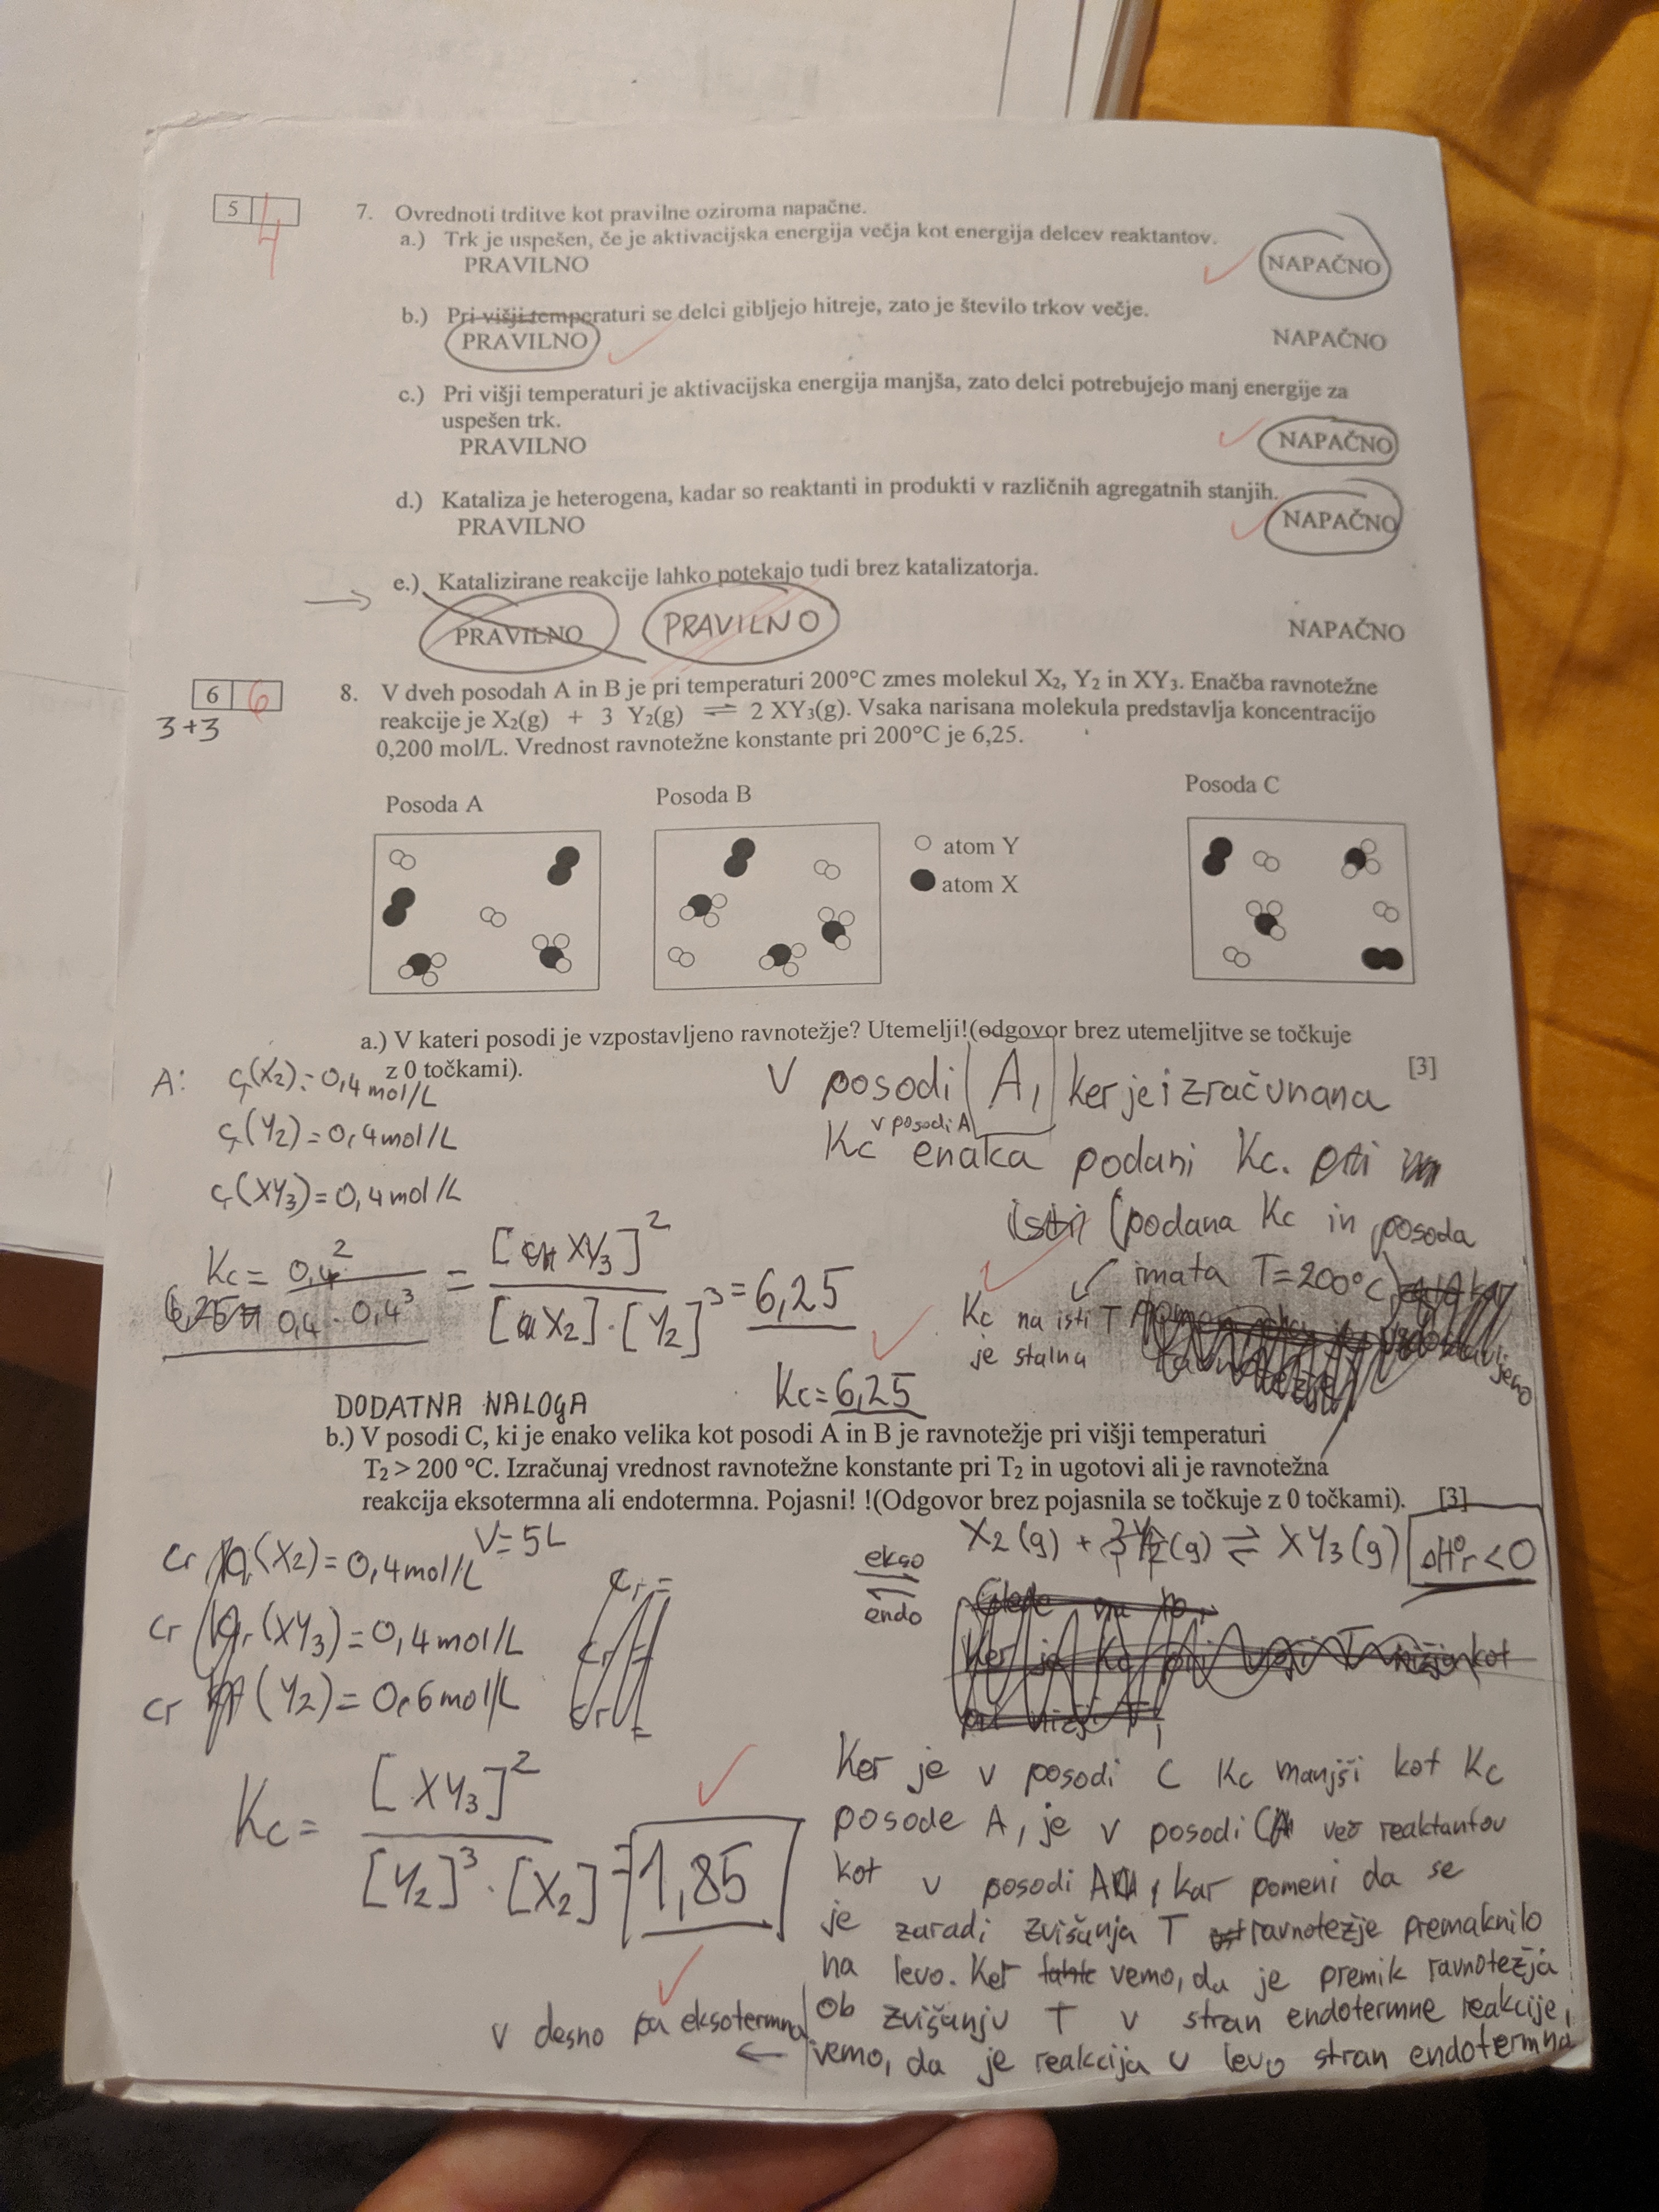 5 4
7. Ovrednoti trditve kot pravilne oziroma napačne.
a.) Trk je uspešen, če je aktivacijska energija večja kot energija delcev reaktantov.
PRAVILNO NAPAČNO
b.) Pri višji temperaturi se delci gibljejo hitreje, zato je število trkov večje.
PRAVILNO NAPAČNO
c.) Pri višji temperaturi je aktivacijska energija manjša, zato delci potrebujejo manj energije za
uspešen trk.
PRAVILNO NAPAČNO
d.) Kataliza je heterogena, kadar so reaktanti in produkti v različnih agregatnih stanjih.
PRAVILNO NAPAČNO
e.) Katalizirane reakcije lahko potekajo tudi brez katalizatorja.
PRAVILNO PRAVILNO NAPAČNO
6 6
3+3
8. V dveh posodah A in B je pri temperaturi 200°C zmes molekul X₂, Y₂ in XY₃. Enačba ravnotežne
reakcije je X₂(g) + 3 Y₂(g) ⇌ 2 XY₃(g). Vsaka narisana molekula predstavlja koncentracijo
0,200 mol/L. Vrednost ravnotežne konstante pri 200°C je 6,25.
Posoda A Posoda B Posoda C
atom Y
atom X
a.) V kateri posodi je vzpostavljeno ravnotežje? Utemelji!(odgovor brez utemeljitve se točkuje
z 0 točkami). [3]
A: (X₂) = 0,4 mol/L
(Y₂) = 0,4 mol/L
(XY₃) = 0,4 mol/L
V posodi A, ker je izračunana
Kc v posodi A enaka podani Kc.
(podana Kc in posoda
imata T=200°C)
Kc na isti T
je stalna
Kc = 0,4² / 0,4 · 0,4³ = [XY₃]² / [X₂] · [Y₂]³ = 6,25
Kc = 6,25
DODATNA NALOGA
b.) V posodi C, ki je enako velika kot posodi A in B je ravnotežje pri višji temperaturi
T₂ > 200 °C. Izračunaj vrednost ravnotežne konstante pri T₂ in ugotovi ali je ravnotežna
reakcija eksotermna ali endotermna. Pojasni! !(Odgovor brez pojasnila se točkuje z 0 točkami). [3]
cr (X₂) = 0,4 mol/L V=5L
cr (XY₃) = 0,4 mol/L
cr (Y₂) = 0,6 mol/L
cr =
cr =
cr =
ekso
endo
X₂ (g) + 3Y₂ (g) ⇌ XY₃ (g) ΔH°r < 0
Ker je Kc pri T nižja kot
pri nižji T,
Kc = [XY₃]² / [Y₂]³ · [X₂] = 1,85
Ker je v posodi C Kc manjši kot Kc
posode A, je v posodi C več reaktantov
kot v posodi A, kar pomeni da se
je zaradi zvišanja T ravnotežje premaknilo
na levo. Ker vemo, da je premik ravnotežja
ob zvišanju T v stran endotermne reakcije,
vemo, da je reakcija v levo stran endotermna
v desno pa eksotermna